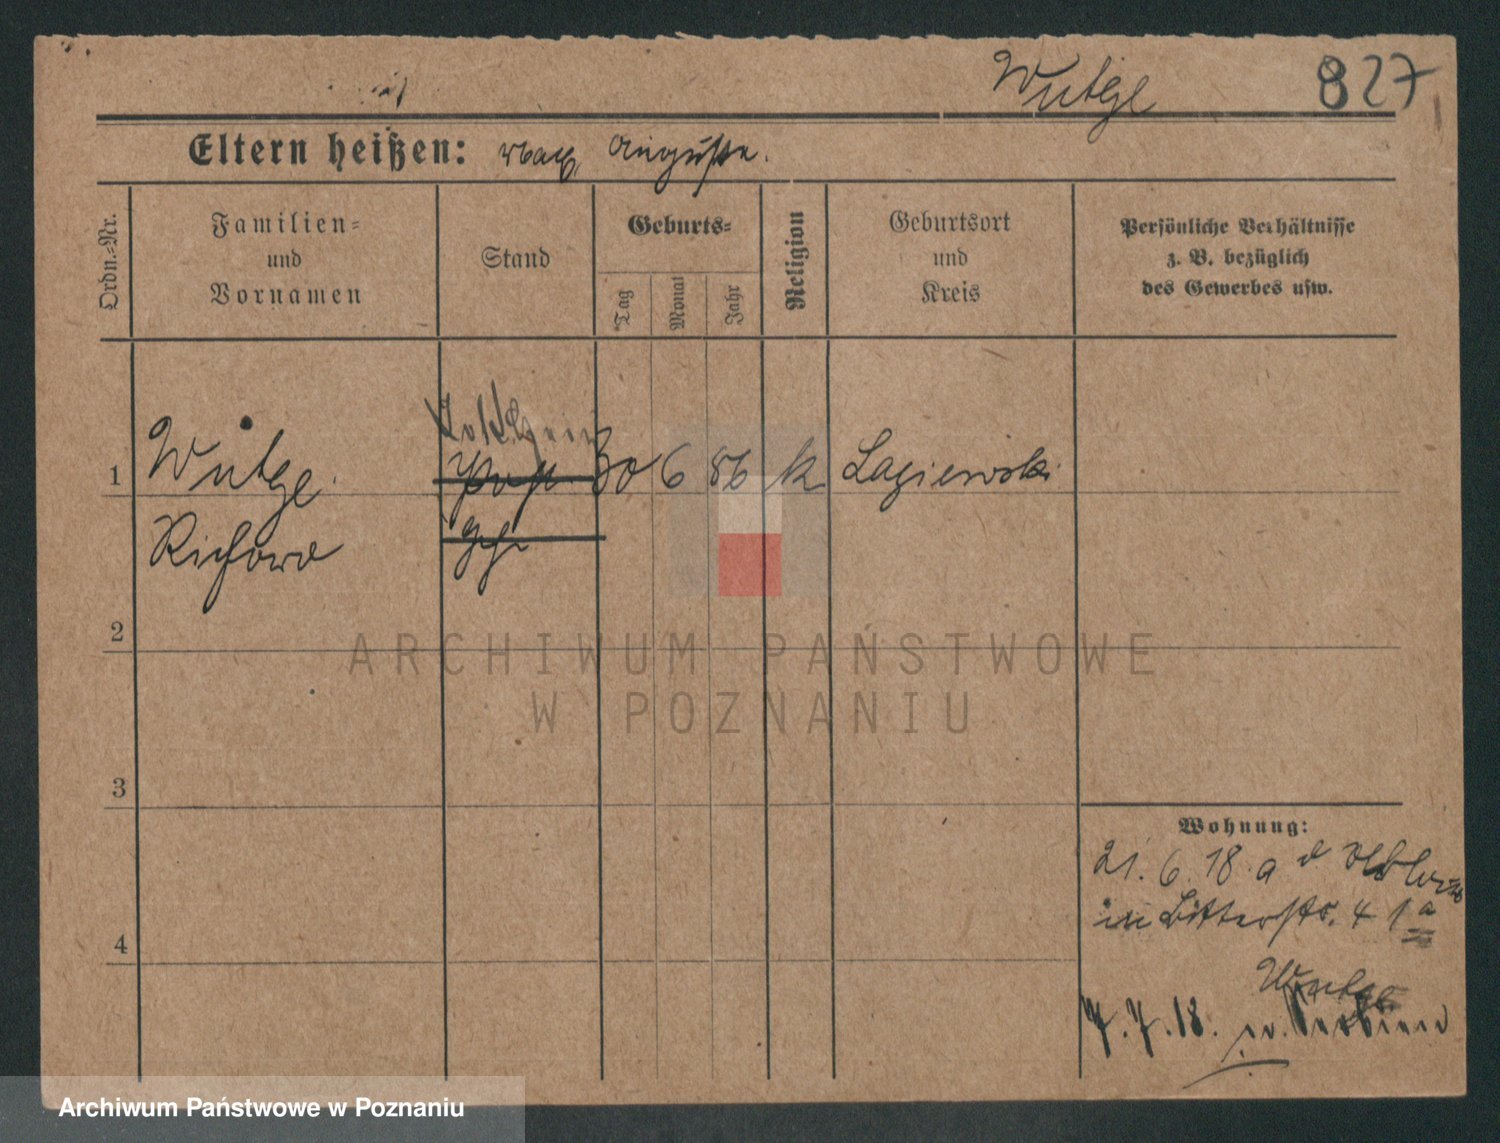 Wutge 827
Eltern heißen: Auguste.
Ordn.-Nr.
Familien-
und
Vornamen
Stand
Geburts-
Tag
Monat
Jahr
Religion
Geburtsort
und
Kreis
Persönliche Verhältnisse
z. B. bezüglich
des Gewerbes usw.
1 Wutge 30 6 86 k Lagiewski
Richard
2
3
4
Wohnung:
21. 6. 18. a
in Bitterstr. 4 1a
Wutge
7. 7. 18. n.
ARCHIWUM PAŃSTWOWE
W POZNANIU
Archiwum Państwowe w Poznaniu